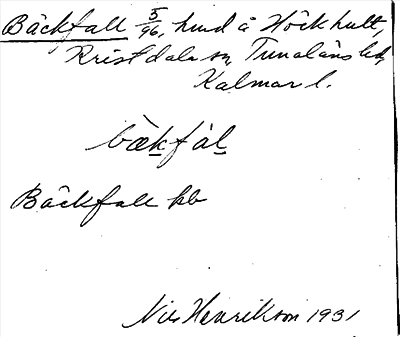 Bäckfall 5/96, hmd å Höckhult,
Kristdala sn, Tunaläns hd,
Kalmar l.
bækfal
Bäckfall kb
Nils Henrikson 1931